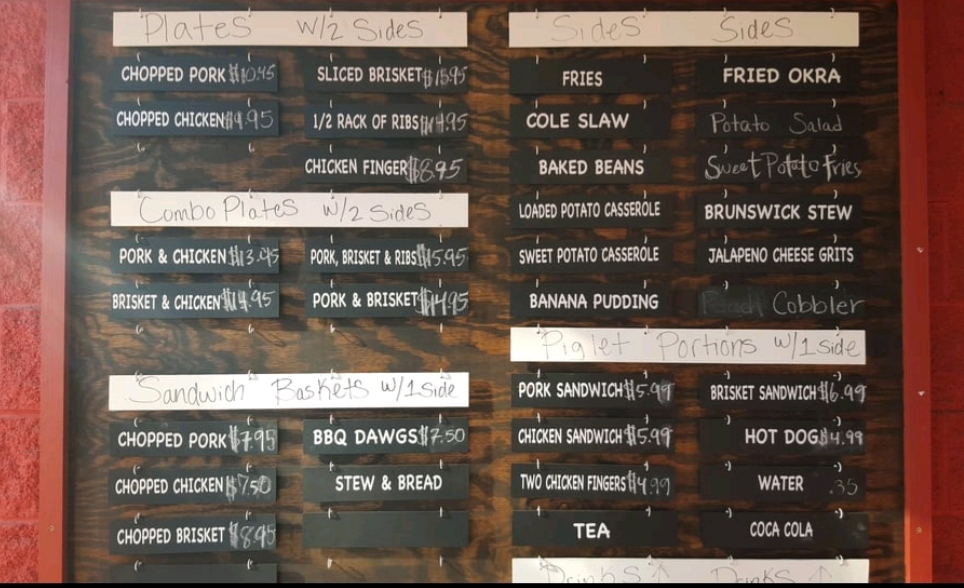 Plates w/2 Sides
CHOPPED PORK $10.45
SLICED BRISKET $15.95
CHOPPED CHICKEN $9.95
1/2 RACK OF RIBS $14.95
CHICKEN FINGER $8.95
Combo Plates w/2 Sides
PORK & CHICKEN $13.95
PORK, BRISKET & RIBS $15.95
BRISKET & CHICKEN $14.95
PORK & BRISKET $14.95
Sandwich Baskets w/1 side
CHOPPED PORK $7.95
BBQ DAWGS $7.50
CHOPPED CHICKEN $7.50
STEW & BREAD
CHOPPED BRISKET $8.95
Sides Sides
FRIES
FRIED OKRA
COLE SLAW
Potato Salad
BAKED BEANS
Sweet Potato Fries
LOADED POTATO CASSEROLE
BRUNSWICK STEW
SWEET POTATO CASSEROLE
JALAPENO CHEESE GRITS
BANANA PUDDING
Peach Cobbler
Piglet Portions w/1 side
PORK SANDWICH $5.99
BRISKET SANDWICH $6.99
CHICKEN SANDWICH $5.99
HOT DOG $4.99
TWO CHICKEN FINGERS $4.99
WATER .35
TEA
COCA COLA
Drinks ↑ Drinks ↑